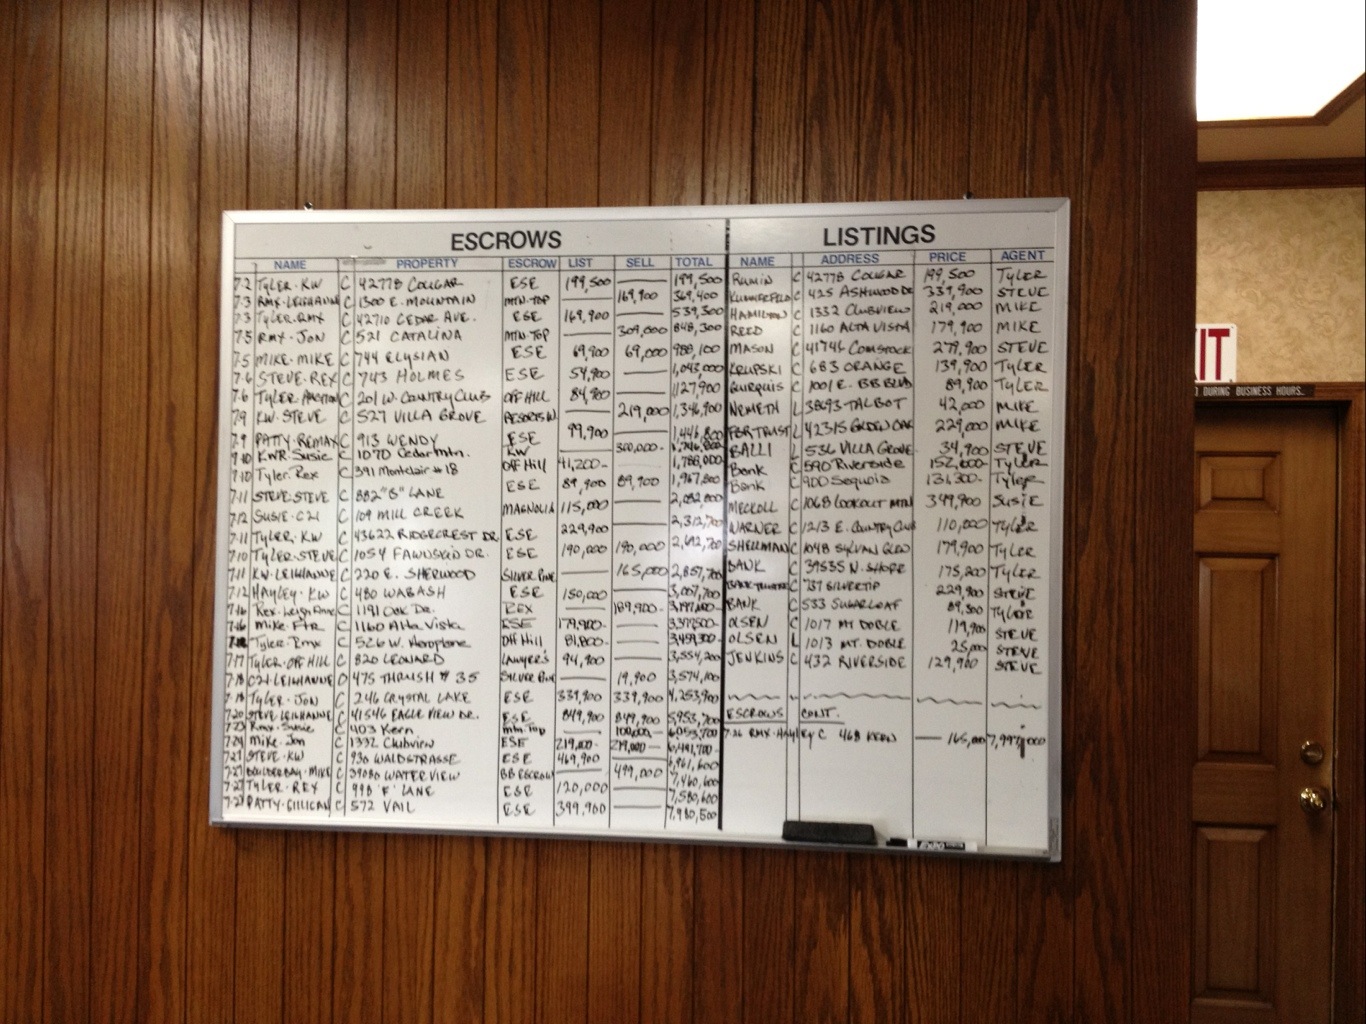 ESCROWS LISTINGS
NAME PROPERTY ESCROW LIST SELL TOTAL NAME ADDRESS PRICE AGENT
7-2 TYLER-KW C 42778 COUGAR ESE 199,500 199,500 C 42778 COUGAR 199,500 TYLER
7-3 RMX-LEIGHANNE C 1300 E. MOUNTAIN MTN-TOP 169,900 369,400 C 425 ASHWOOD DR 339,900 STEVE
7-3 TYLER-RMX C 42710 CEDAR AVE. ESE 169,900 539,300 HAMILTON C 1332 CLUBVIEW 219,000 MIKE
7-5 RMX-JON C 521 CATALINA MTN-TOP 309,000 848,300 REED C 1160 ALTA VISTA 179,900 MIKE
7-5 MIKE-MIKE C 744 ELYSIAN ESE 69,900 69,000 988,100 MASON C 41746 COMSTOCK 279,900 STEVE
7-6 STEVE-REX C 743 HOLMES ESE 54,900 1,043,000 KRUPSKI C 683 ORANGE 139,900 TYLER
7-6 TYLER-AUCTION C 201 W. COUNTRY CLUB OFF HILL 84,900 1,127,900 GUIRGUIS C 1001 E. BB BLVD 89,900 TYLER
7-9 KW-STEVE C 527 VILLA GROVE 219,000 1,346,900 NEMETH L 38693 TALBOT 42,000 MIKE
7-9 PATTY-REMAX C 913 WENDY ESE 99,900 1,446,800 L 42315 GOLDEN OAK 229,000 MIKE
7-10 KWR-Susie C 1070 Cedar Mtn. KW 300,000- 1,746,800 BALLI L 536 VILLA GROVE 34,900 STEVE
7-10 Tyler-Rex C 391 Montclair #18 Off Hill 41,200- 1,788,000 Bank C 590 Riverside 152,600- TYLER
7-11 STEVE-STEVE C 882 "G" LANE ESE 89,900 89,900 1,967,800 Bank C 900 Sequoia 131,300- Tyler
7-12 SUSIE-C21 C 109 MILL CREEK MAGNOLIA 115,000 2,082,800 MECKOLL C 1068 LOOKOUT MTN 399,900 SUSIE
7-11 TYLER-KW C 43622 RIDGECREST DR. ESE 229,900 2,312,700 WARNER C 1213 E. COUNTRY CLUB 110,000 TYLER
7-10 TYLER-STEVE C 1054 FAWNSKIN DR. ESE 190,000 190,000 2,692,700 SHELLMAN C 1048 SYLVAN GLEN 179,900 TYLER
7-11 KW-LEIGHANNE C 220 E. SHERWOOD SILVER PINE 165,000 2,857,700 BANK C 39535 N. SHORE 175,200 TYLER
7-12 HAYLEY-KW C 480 WABASH ESE 150,000 3,007,700 C 737 SILVERTIP 229,900 STEVE
7-16 Rex-Leigh Anne C 1191 Oak Dr. REX 189,900- BANK C 533 SUGARLOAF 89,300 TYLER
7-16 Mike-Ftr C 1160 Alta Vista ESE 179,900- OLSEN C 1017 MT DOBLE 119,900 STEVE
Tyler-Rmx C 526 W. Aeroplane Off Hill 81,800- 3,459,300- OLSEN L 1013 MT. DOBLE 25,000 STEVE
7-17 TYLER-OFF HILL C 820 LEONARD LAWYER'S 94,900 3,554,200 JENKINS C 432 RIVERSIDE 129,900 STEVE
7-18 C21-LEIGHANNE O 475 THRUSH # 35 SILVER PINE 19,900 3,574,100
7-19 TYLER-JON C 246 CRYSTAL LAKE ESE 339,900 339,900 4,253,900
7-20 STEVE-LEIGHANNE C 41546 EAGLE VIEW DR. ESE 849,900 849,900 5,953,700 ESCROWS CONT.
7-23 Rmx-Susie C 403 Kern Mtn Top 100,000- 6,053,700 7-26 RMX-HAYLEY C 468 KERN 165,000
7-24 Mike-Jon C 1332 Clubview ESE 219,000- 219,000- 6,491,700-
7-21 STEVE-KW C 936 WALDSTRASSE ESE 469,900 6,961,600
7-27 BOULDERBAY-MIKE C 39080 WATERVIEW BB ESCROW 499,000 7,460,600
7-27 TYLER-REX C 998 "F" LANE ESE 120,000 7,580,600
7-27 PATTY-GILLIGAN C 572 VAIL ESE 399,900 7,980,500
IT
DURING BUSINESS HOURS.